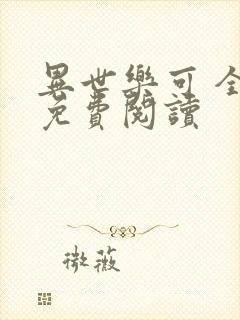 異世樂可 全
免費閱讀
微薇